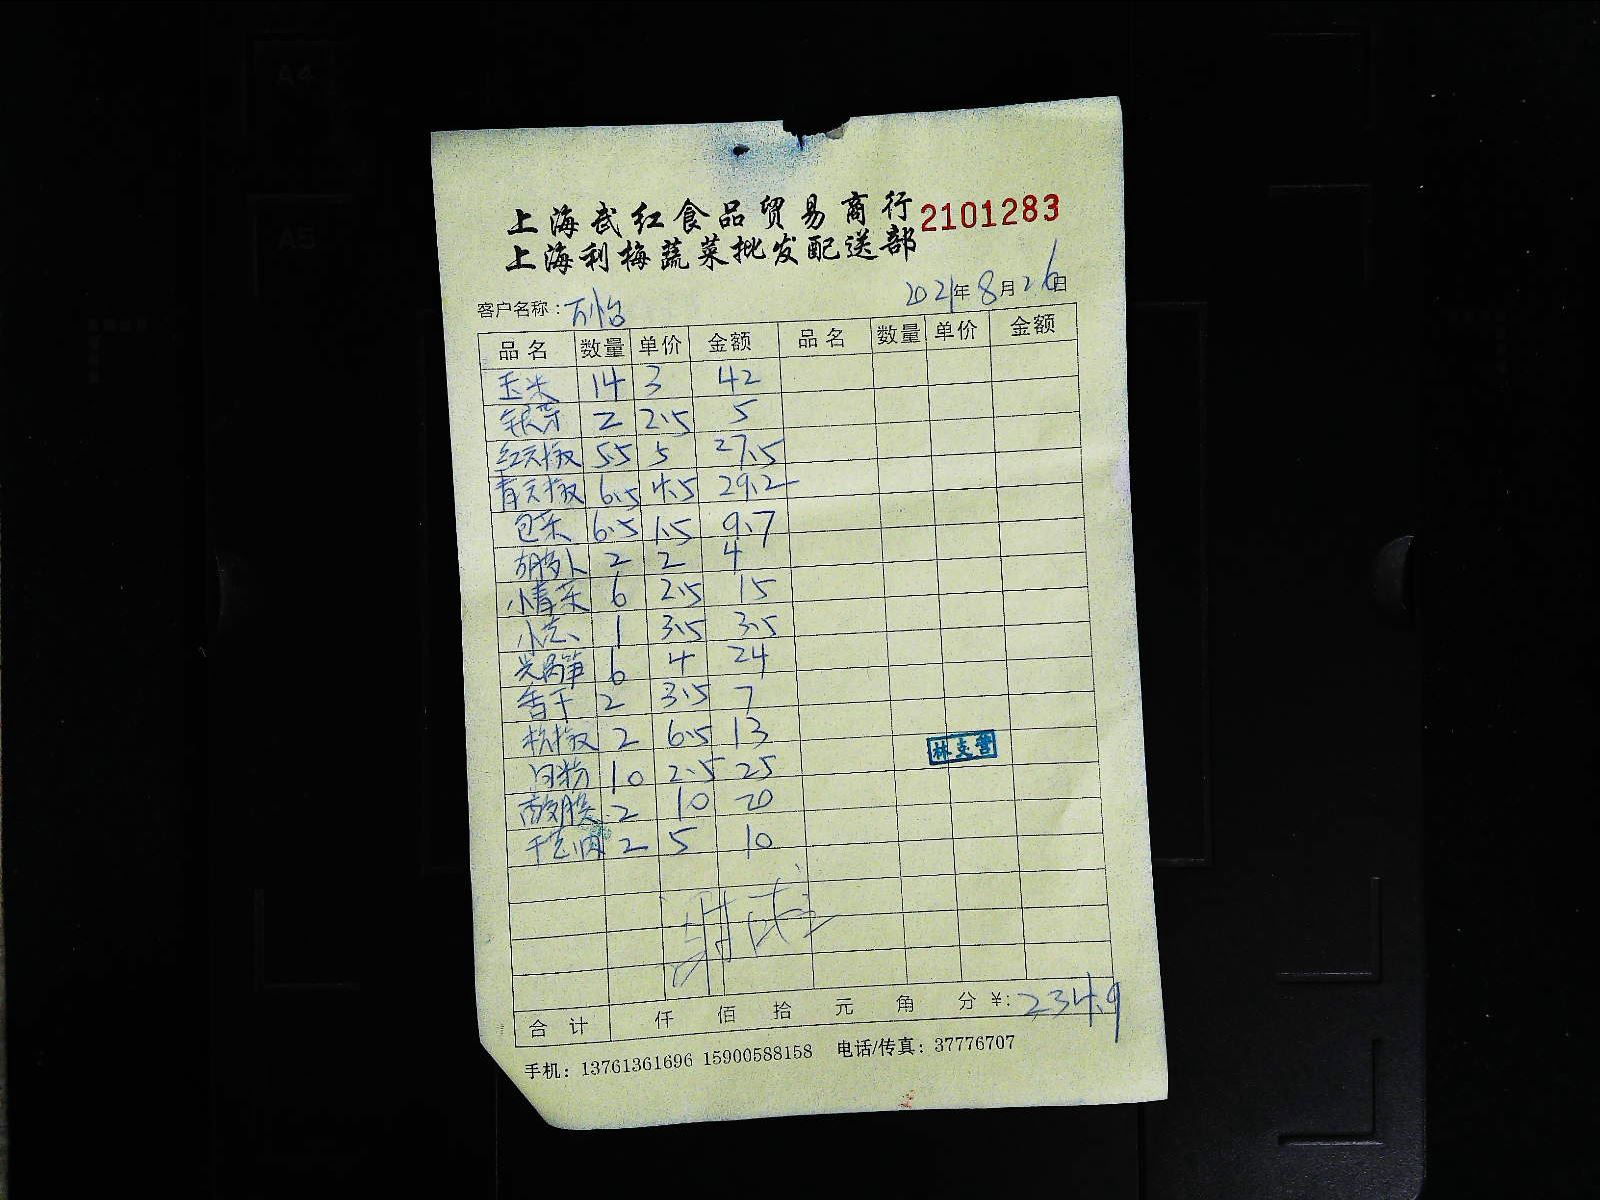 上海武红食品贸易商行 2101283
上海利梅蔬菜批发配送部
客户名称：万怡 2021年8月26日
品名 数量 单价 金额 品名 数量 单价 金额
玉米 14 3 42
银芽 2 2.5 5
红尖椒 5.5 5 27.5
青尖椒 6.5 4.5 29.2
包菜 6.5 1.5 9.7
胡萝卜 2 2 4
小青菜 6 2.5 15
小葱 1 3.5 3.5
莴笋 6 4 24
香干 2 3.5 7
杭椒 2 6.5 13
河粉 10 2.5 25
2 10 20
干葱肉 2 5 10
林支管
合计 仟 佰 拾 元 角 分 ¥：234.9
手机：13761361696 15900588158 电话/传真：37776707